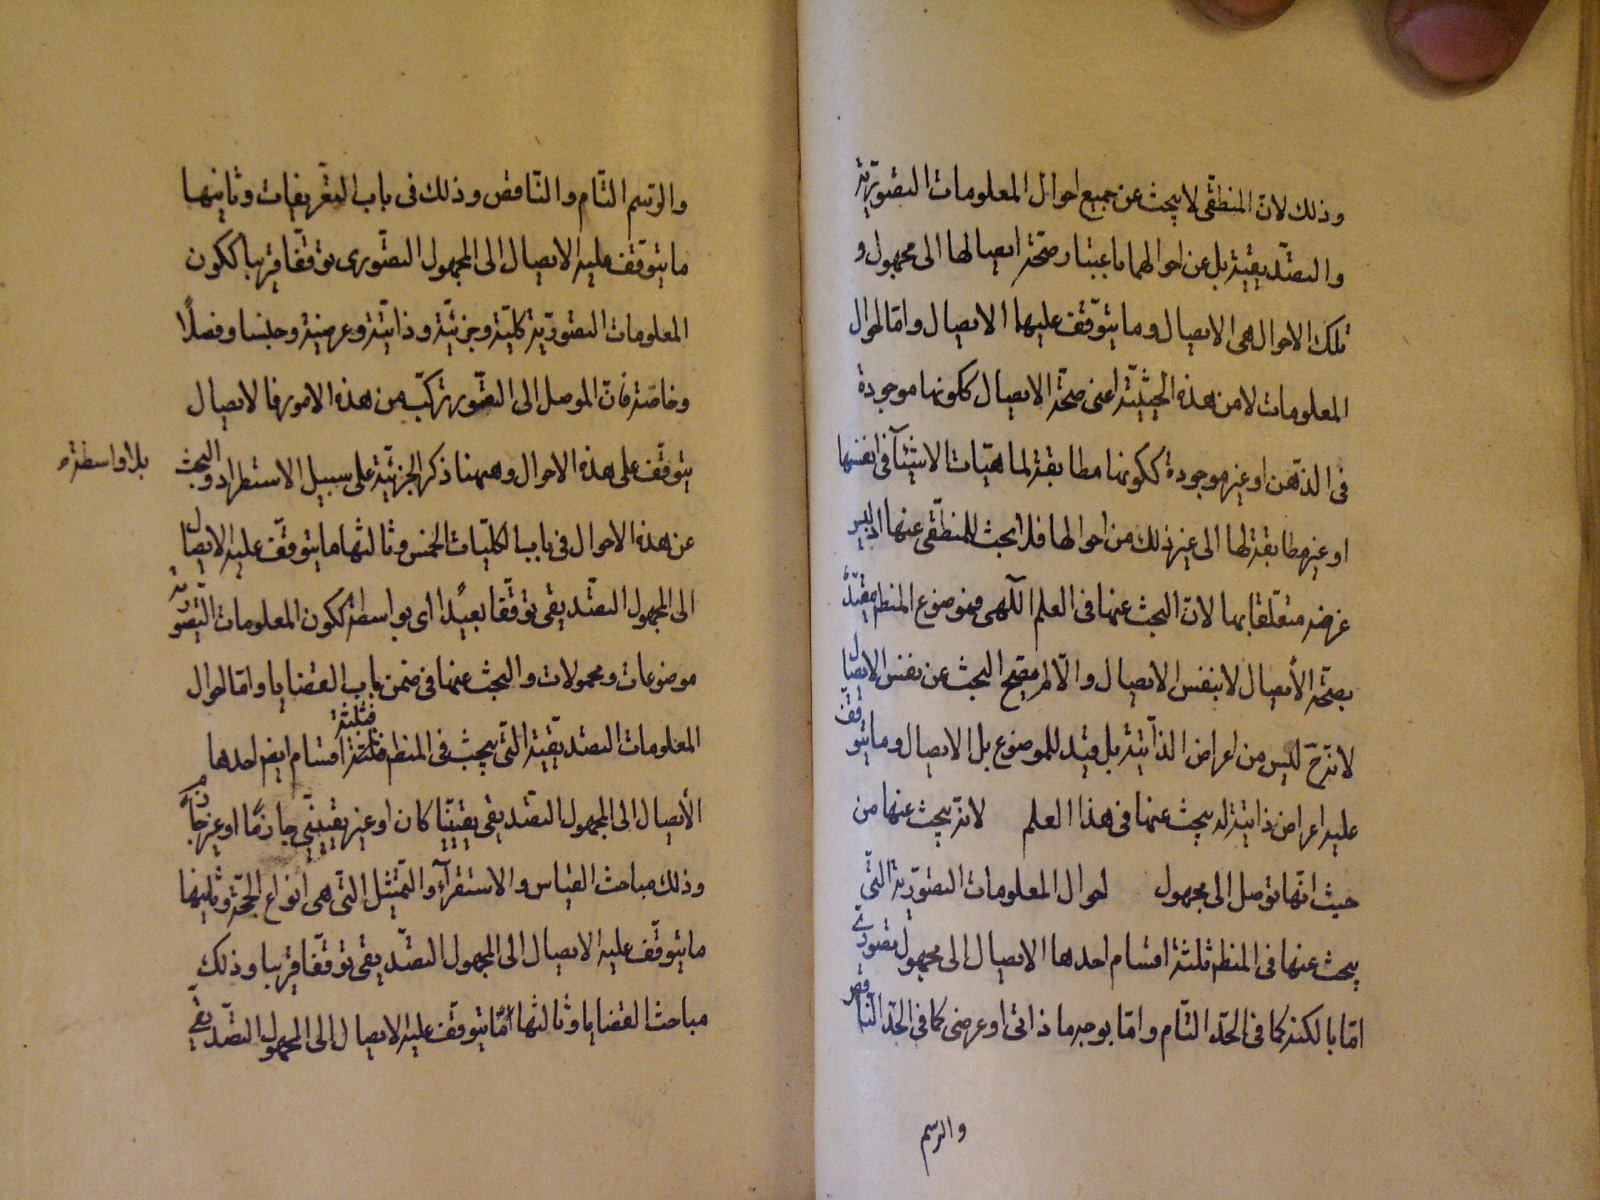 وذلك لان المنطقى لا يبحث عن جميع احوال المعلومات التصورية
والتصديقية بل عن احوالهما باعتبار صحة ايصالها الى مجهول و
تلك الاحوال هى الايصال وما يتوقف عليها الايصال واما احوال
المعلومات لا من هذه الحيثية اعنى صحة الايصال ككونها موجودة
فى الذهن او غير موجودة ككونها مطابقة لماهيات الاشيآء فى انفسها
او غير مطابقة لها الى غير ذلك من احوالها فلا بحث للمنطقى عنها اذ ليس
غرضه متعلقا بها لان البحث عنها فى العلم الآلهى فموضوع المنطق مقيد
بصحة الايصال لا بنفس الايصال والا لم يصح البحث عن نفس الايصال
لانه ح ليس من اعراض الذاتية بل قيد للموضوع بل الايصال وما يتوقف
عليه اعراض ذاتية له يبحث عنها فى هذا العلم لانه يبحث عنها من
حيث انها توصل الى مجهول احوال المعلومات التصورية التى
يبحث عنها فى المنطق ثلثة اقسام احدها الايصال الى مجهول تصورى
اما بالكنه كما فى الحد التام واما بوجه ما ذاتى او عرضى كما فى الحد الناقص
والرسم
والرسم التام والناقص وذلك فى باب التعريفات وثانيها
ما يتوقف عليه الايصال الى المجهول التصورى توقفا قريبا ككون
المعلومات التصورية كلية وجزئية وذاتية وعرضية وجنسا وفصلا
وخاصة فان الموصل الى التصور تركبه من هذه الامور فالايصال
يتوقف على هذة الاحوال وههنا ذكر الجزئية على سبيل الاستطراد والبحث
بلا واسطة
عن هذه الاحوال فى باب الكليات الخمس وثالثها ما يتوقف عليه الايصال
الى المجهول التصديقى توقفا بعيدا اى بواسطة ككون المعلومات التصورية
موضوعات ومحمولات والبحث عنها فى ضمن باب القضايا واما احوال
فثلثة
المعلومات التصديقية التى يبحث فى المنطق فثلثة اقسام ايضا احدها
الايصال الى المجهول التصديقى يقينيا كان او غير يقينى جازما او غير جازم
وذلك مباحث القياس والاستقرآء والتمثيل التى هى انواع الحجة وثانيها
ما يتوقف عليه الايصال الى المجهول التصديقى توقفا قريبا وذلك
مباحث القضايا وثالثها ما يتوقف عليه الايصال الى المجهول التصديقى